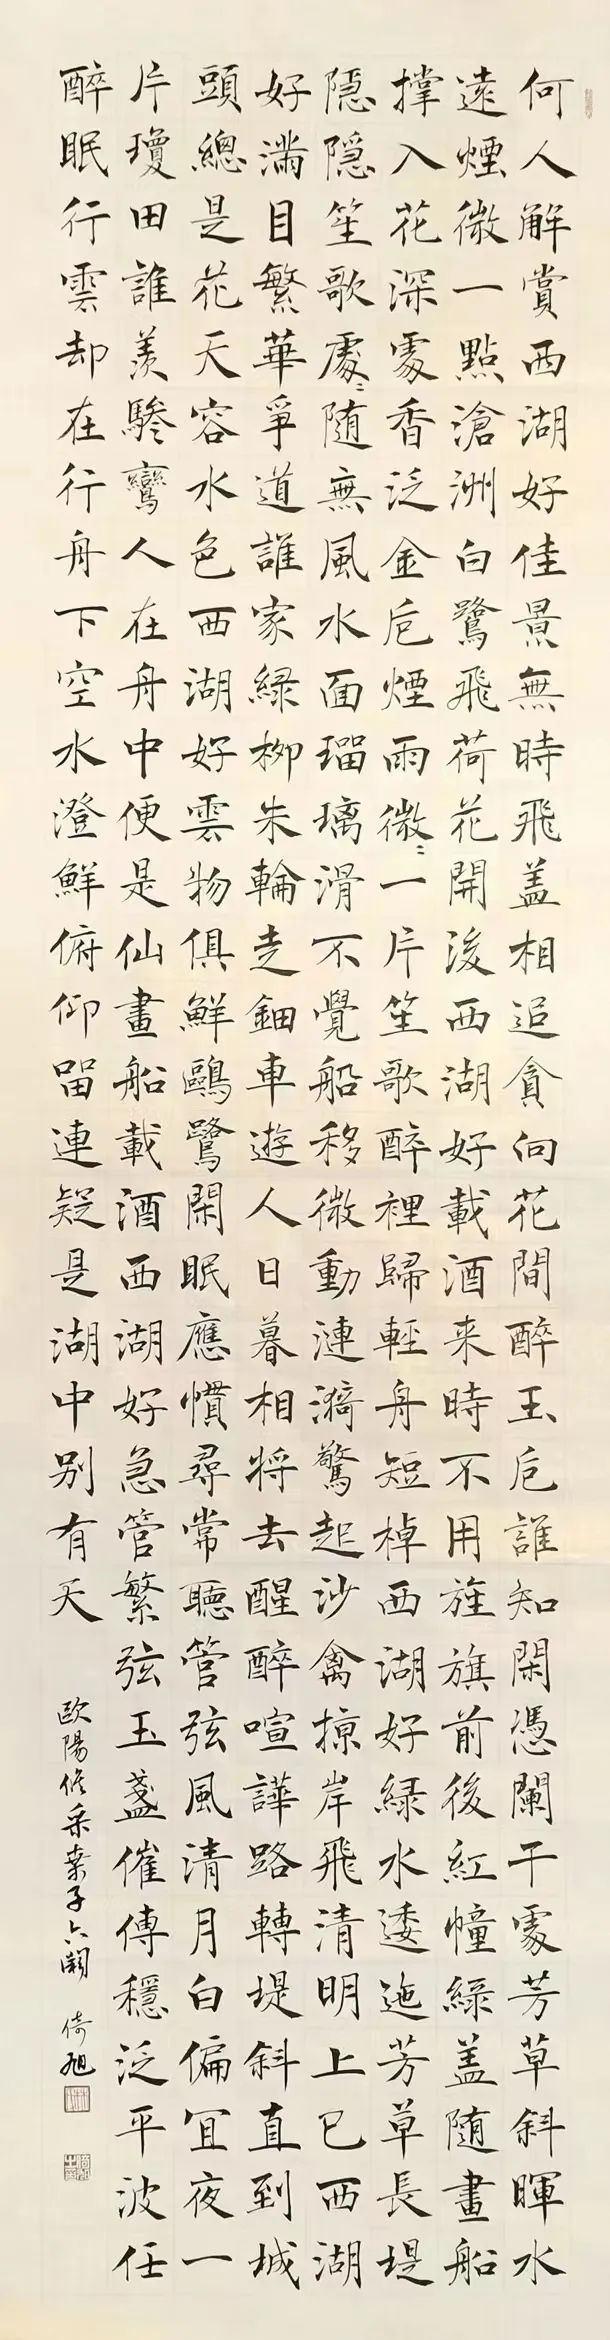 何人解賞西湖好佳景無時飛蓋相追貪向花間醉玉卮誰知閑憑闌干處芳草斜暉水
遠煙微一點滄洲白鷺飛荷花開後西湖好載酒来時不用旌旗前後紅幢綠蓋隨畫船
撑入花深處香泛金卮煙雨微〻一片笙歌醉裡歸輕舟短棹西湖好綠水逶迤芳草長堤
隱隱笙歌處〻随無風水面瑠璃滑不覺船移微動漣漪驚起沙禽掠岸飛清明上巳西湖
好滿目繁華爭道誰家綠柳朱輪走鈿車遊人日暮相將去醒醉喧譁路轉堤斜直到城
頭總是花天容水色西湖好雲物俱鮮鷗鷺閑眠應慣尋常聽管弦風清月白偏宜夜一
片瓊田誰羨驂鸞人在舟中便是仙畫船載酒西湖好急管繁弦玉盞催傳穩泛平波任
醉眠行雲却在行舟下空水澄鮮俯仰留連疑是湖中別有天
歐陽修采桑子六闋 倚旭